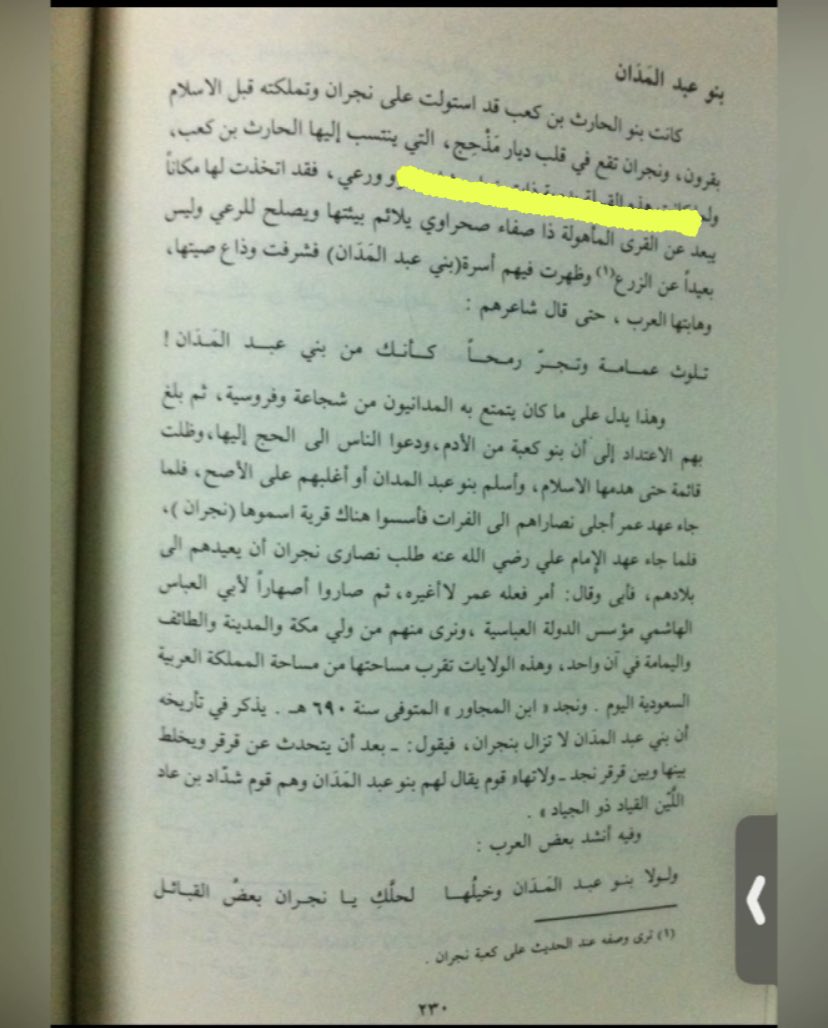 بنو عبد المَدَان
كانت بنو الحارث بن كعب قد استولت على نجران وتملكته قبل الاسلام
بقرون، ونجران تقع في قلب ديار مَذْحِج، التي ينتسب إليها الحارث بن كعب،
ورعي، فقد اتخذت لها مكاناً
يبعد عن القرى المأهولة ذا صفاء صحراوي يلائم بيئتها ويصلح للرعي وليس
بعيداً عن الزرع(١) وظهرت فيهم أسرة(بني عبد المَدَان) فشرفت وذاع صيتها،
وهابتها العرب ، حتى قال شاعرهم :
تلوث عمامة وتجرّ رمحاً كأنك من بني عبد المَدَان !
وهذا يدل على ما كان يتمتع به المدانيون من شجاعة وفروسية، ثم بلغ
بهم الاعتداد إلى أن بنو كعبة من الأدم،ودعوا الناس الى الحج إليها،وظلت
قائمة حتى هدمها الاسلام، وأسلم بنو عبد المدان أو أغلبهم على الأصح، فلما
جاء عهد عمر أجلى نصاراهم الى الفرات فأسسوا هناك قرية اسموها (نجران )،
فلما جاء عهد الإمام علي رضي الله عنه طلب نصارى نجران أن يعيدهم الى
بلادهم، فأبى وقال: أمر فعله عمر لاأغيره، ثم صاروا أصهاراً لأبي العباس
الهاشمي مؤسس الدولة العباسية ،ونرى منهم من ولي مكة والمدينة والطائف
واليمامة في آن واحد، وهذه الولايات تقرب مساحتها من مساحة المملكة العربية
السعودية اليوم . ونجد « ابن المجاور » المتوفى سنة ٦٩٠ هـ . يذكر في تأريخه
أن بني عبد المدَان لا تزال بنجران، فيقول: ـ بعد أن يتحدث عن قرقر ويخلط
بينها وبين قرقر نجد ـ ولاتها« قوم يقال لهم بنو عبد المَدَان وهم قوم شدّاد بن عاد
اللّيّن القياد ذو الجياد » .
وفيه أنشد بعض العرب :
ولولا بنو عبد المَدَان وخيلُها لحلَّكِ يا نجران بعضُ القبائل
(١) ترى وصفه عند الحديث على كعبة نجران .
٢٣٠